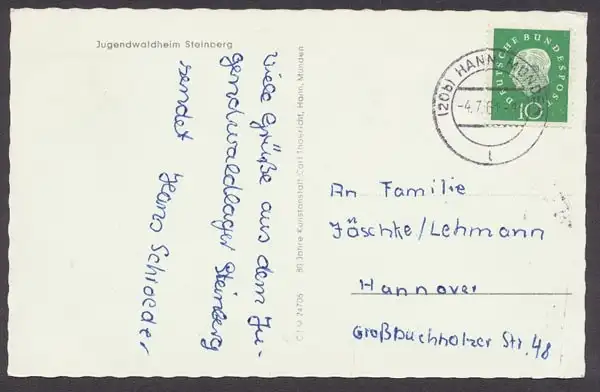 Jugendwaldheim Steinberg
Viele Grüße aus dem Ju-
gendwaldlager Steinberg
sendet Hans Schroeder
80 Jahre Kunstanstalt Carl Thoericht, Hann. Münden
DEUTSCHE BUNDESPOST
10
(20b) HANN. MÜND
-4.7.6
l
An Familie
Jäschke/Lehmann
Hannover
Großbuchholzer Str. 48